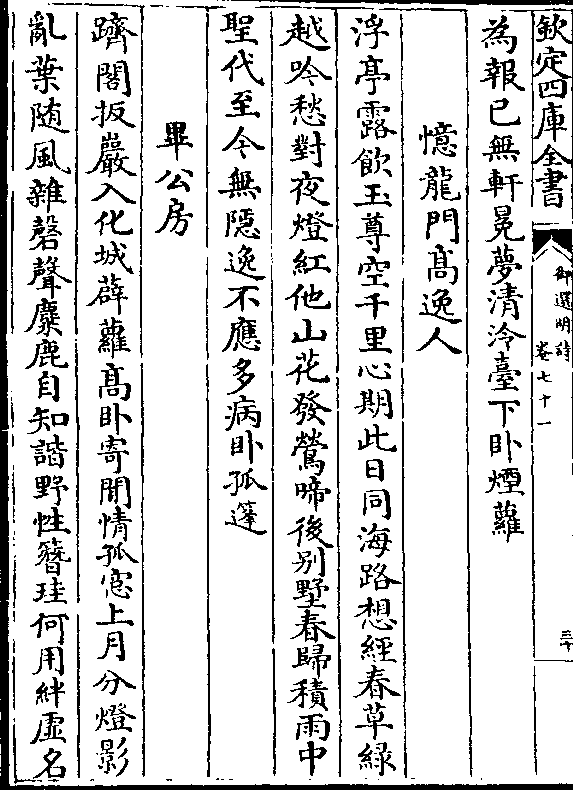 欽定四庫全書
御選明詩
卷七十一
三十
為報已無軒冕夢清泠臺下卧煙蘿
憶龍門髙逸人
浮亭露飲玉尊空千里心期此日同海路想經春草綠
越吟愁對夜燈紅他山花發鶯啼後别墅春歸積雨中
聖代至今無隱逸不應多病卧孤篷
畢公房
躋閣扳巖入化城薜蘿髙卧寄閒情孤窻上月分燈影
亂葉随風雜磬聲麋鹿自知諧野性簪珪何用絆虛名